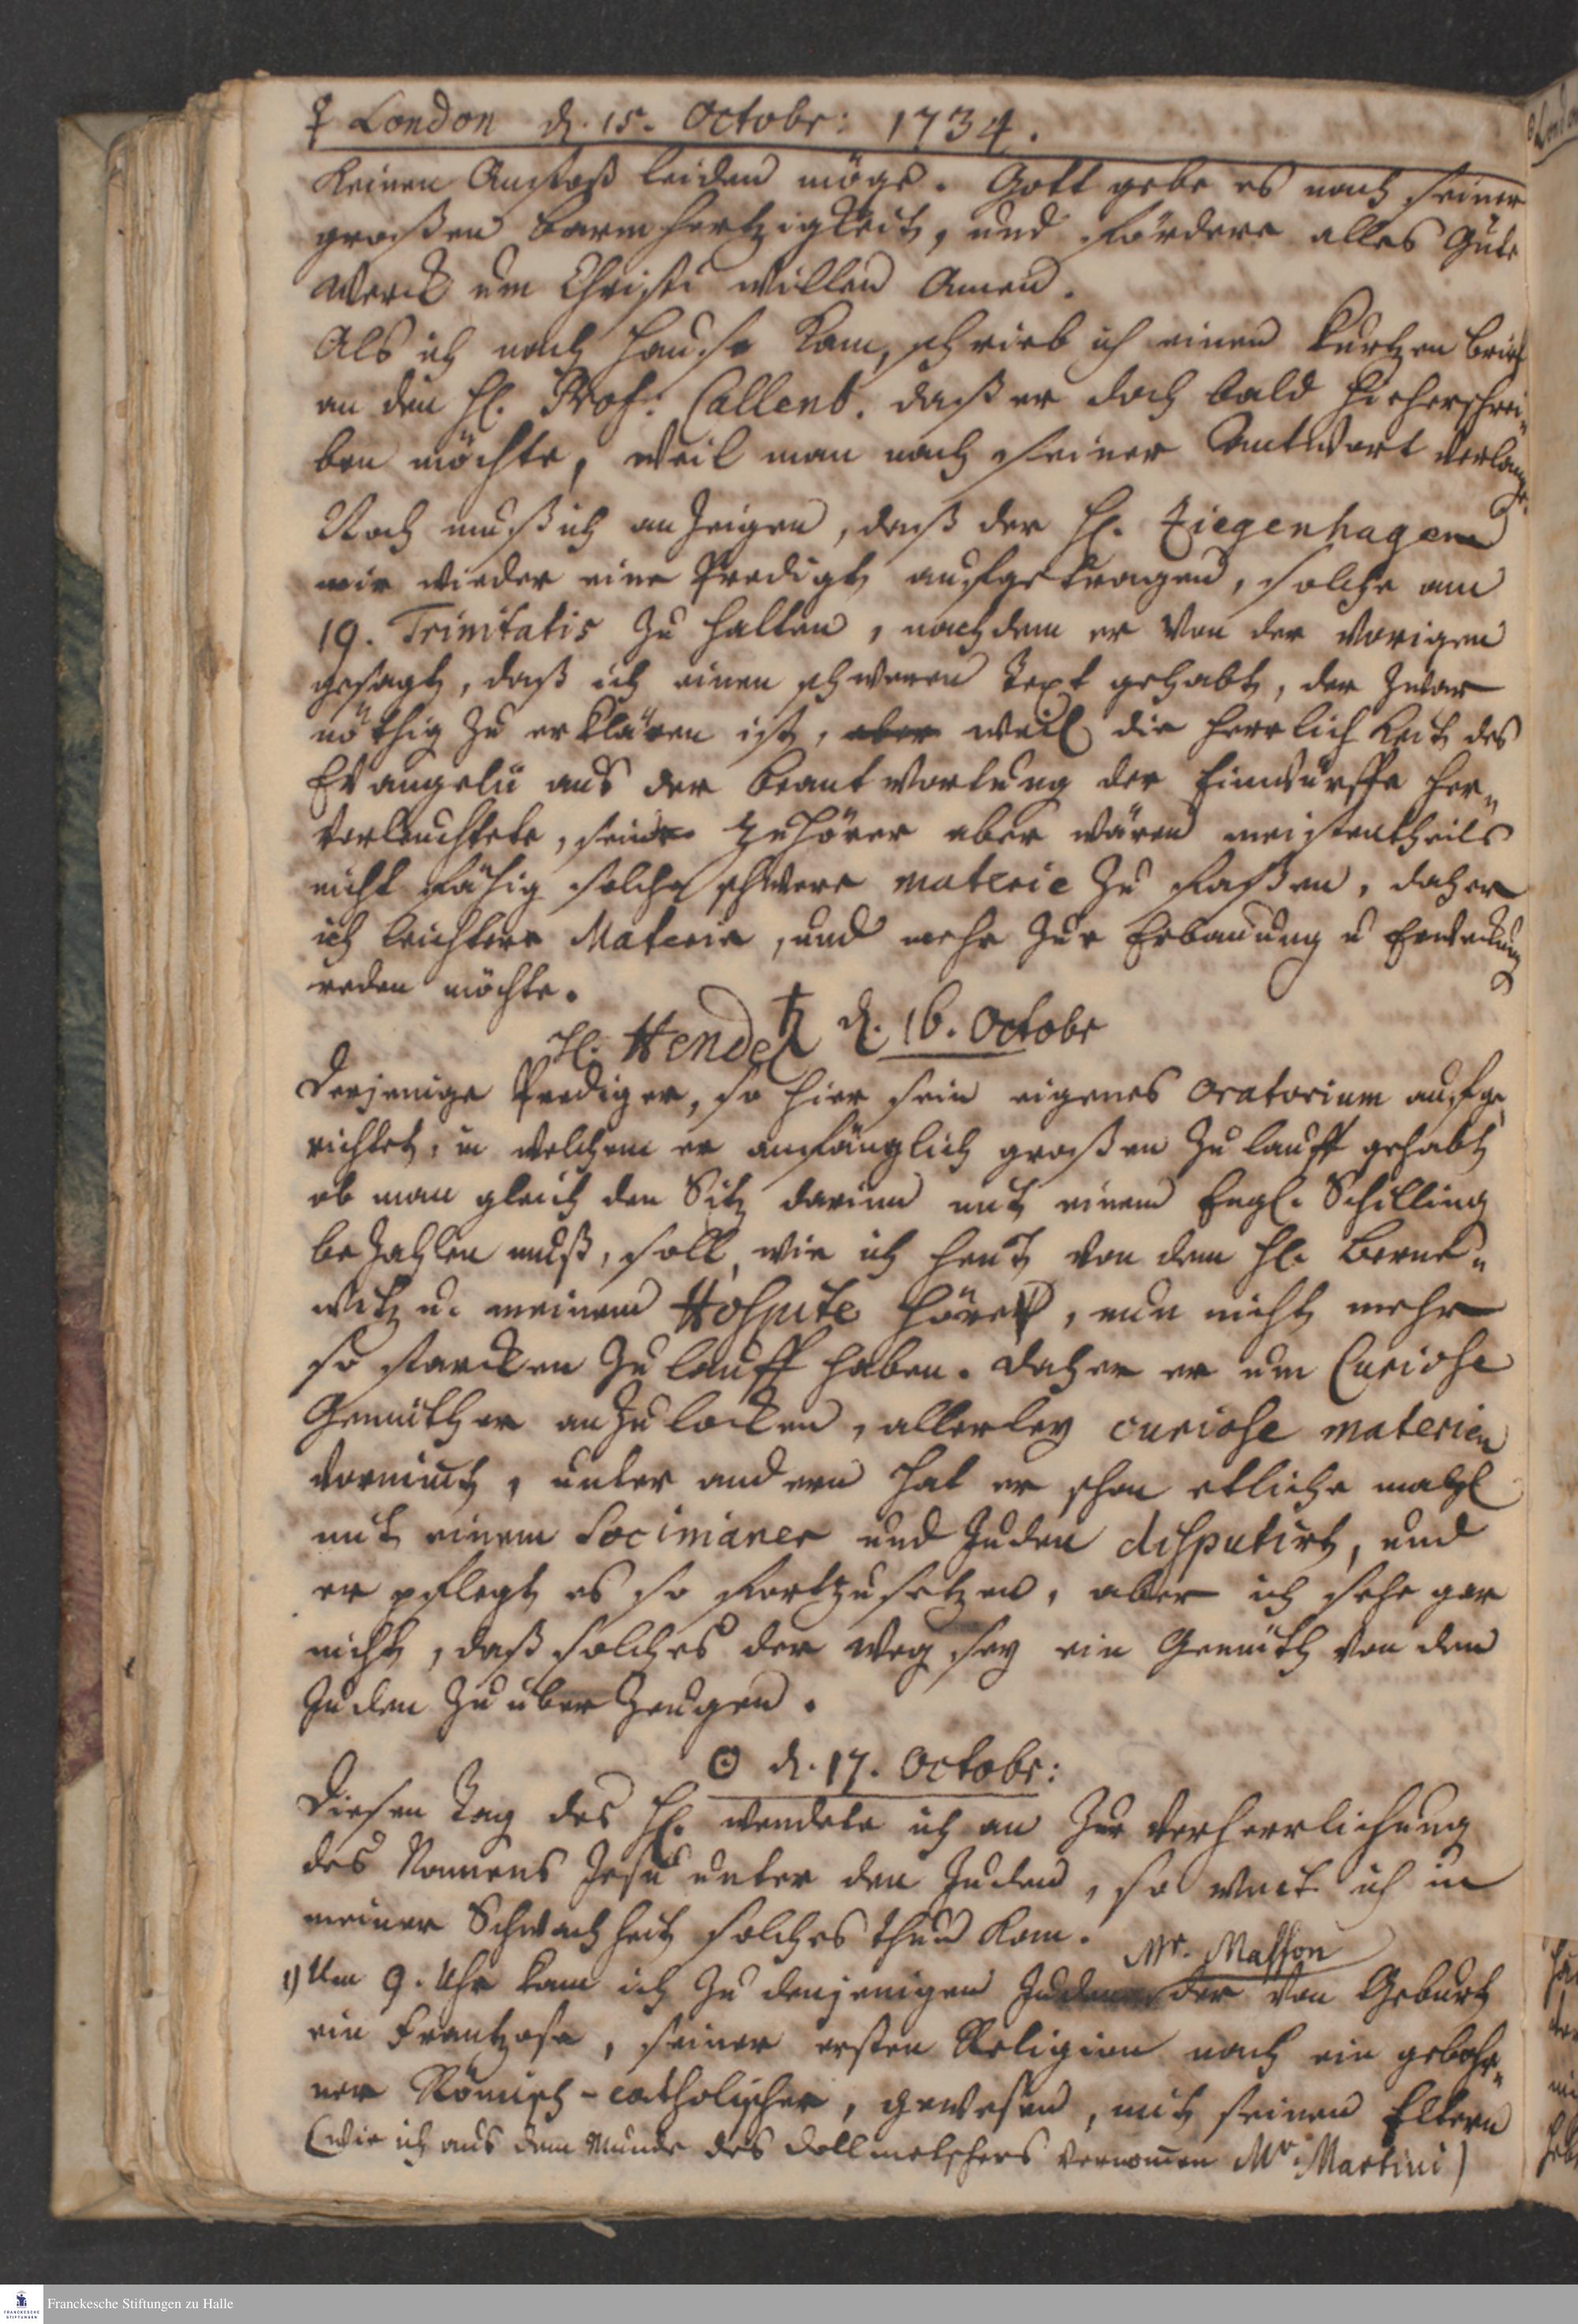 ♀ London d. 15. Octobr: 1734.
keinen Anstoß leiden möge. Gott gebe es nach seiner
großen Barmhertzigkeit, und fördere alles Gute
Werck um Christi willen Amen.
Als ich nach Hause kam, schrieb ich einen kurtzen Brief
an den H. Prof: Callenb. daß er doch bald hieherschrei„
ben möchte, weil man nach seiner Antwort verlange.
Noch muß ich anzeigen, daß der H. Ziegenhagen
mir wieder eine Predigt aufgetragen, solche am
19. Trinitatis zu halten, nachdem er von der vorigen
gesagt, daß ich einen schweren Text gehabt, der zwar
nöthig zu erklären ist, aber weil die Herrlichkeit des
Evangelii aus der Beantwortung der Einwürffe her„
vorleuchtete, seine Zuhörer aber wären meistentheils
nicht fähig solche schwere materie zu faßen, daher
ich leichtere Materie, und mehr zur Erbauung u Erweckung
reden möchte.
H. Hendel ♄ d. 16. Octobr
Derjenige Prediger, so hier sein eigenes Oratorium aufge„
richtet, in welchem er anfänglich großen Zulauff gehabt
ob man gleich den Sitz darinn mit einem Engl. Schilling
bezahlen muß, soll, wie ich heut von dem H. Berne„
witz u. meinem Hospite höre, nun nicht mehr
so starcken Zulauff haben. Daher er um Curiose
Gemüther anzulocken, allerley curiose materien
vornimt, unter andern hat er schon etliche mahl
mit einem Socinianer und Juden disputirt, und
er pflegt es so fortzusetzen, aber ich sehe gar
nicht, daß solches der Weg sey ein Gemüth von den
Juden zu überzeugen.
☉ d. 17. Octobr:
Diesen Tag des H. wendete ich an zur Verherrlichung
des Namens Jesu unter den Juden, so weit ich in
meiner Schwachheit solches thun kan.
Mr. Masson
1) Um 9. Uhr kam ich zu denjenigen Juden der von Geburt
ein Frantzose, seiner ersten Religion nach ein gebohr„
ner Römisch-catholischer, gewesen, mit seinen Eltern
(wie ich aus dem Munde des Dollmetschers vernomen Mr. Martini)
Franckesche Stiftungen zu Halle